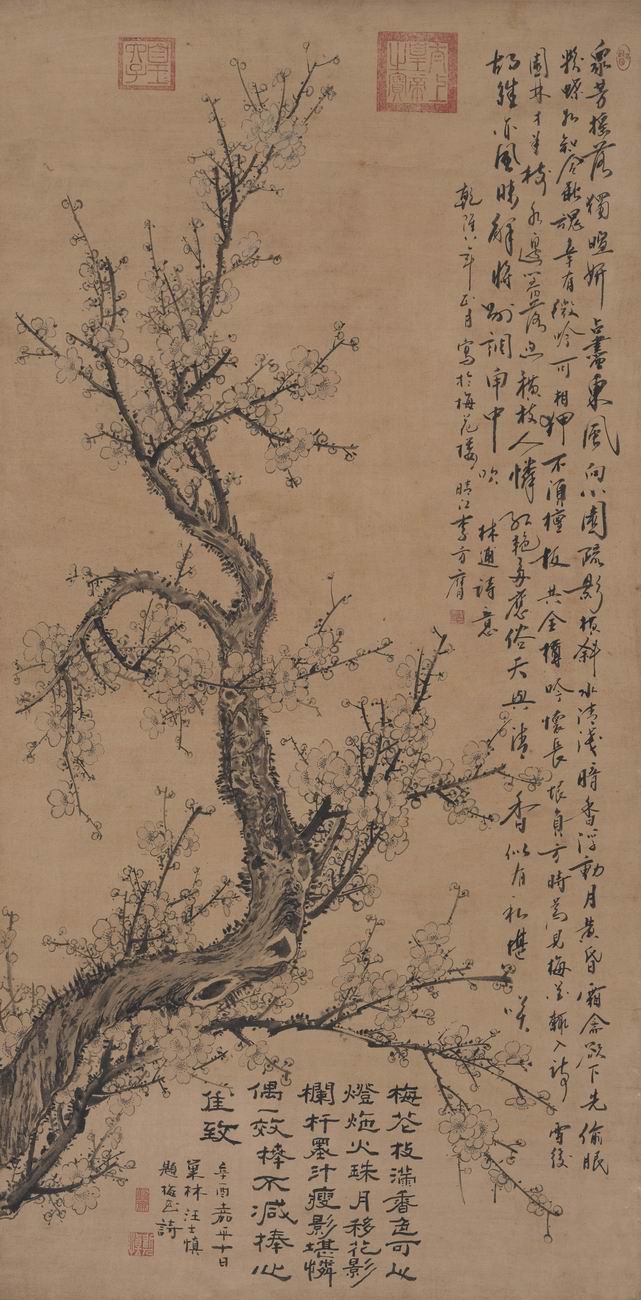 衆芳搖落獨暄妍占盡東風向小園疏影橫斜水清淺暗香浮動月黃昏霜禽欲下先偷眼
粉蝶如知合斷魂幸有微吟可相狎不須檀板共金樽吟懷長恨負芳時為見梅花輒入詩雪後
園林才半樹水邊籬落忽橫枝人憐紅艷多應俗天與清香似有私堪笑
胡雛亦風味解將別調角中吹 林逋詩意
乾隆八年正月寫於梅花樓晴江李方膺
太上皇帝之寶
梅花枝滿香色可以
燈炧火珠月移花影
欄杆墨汁瘦影堪憐
偶一效捧不減捧心
佳致
辛酉嘉平十日
巢林汪士慎
題梅詩